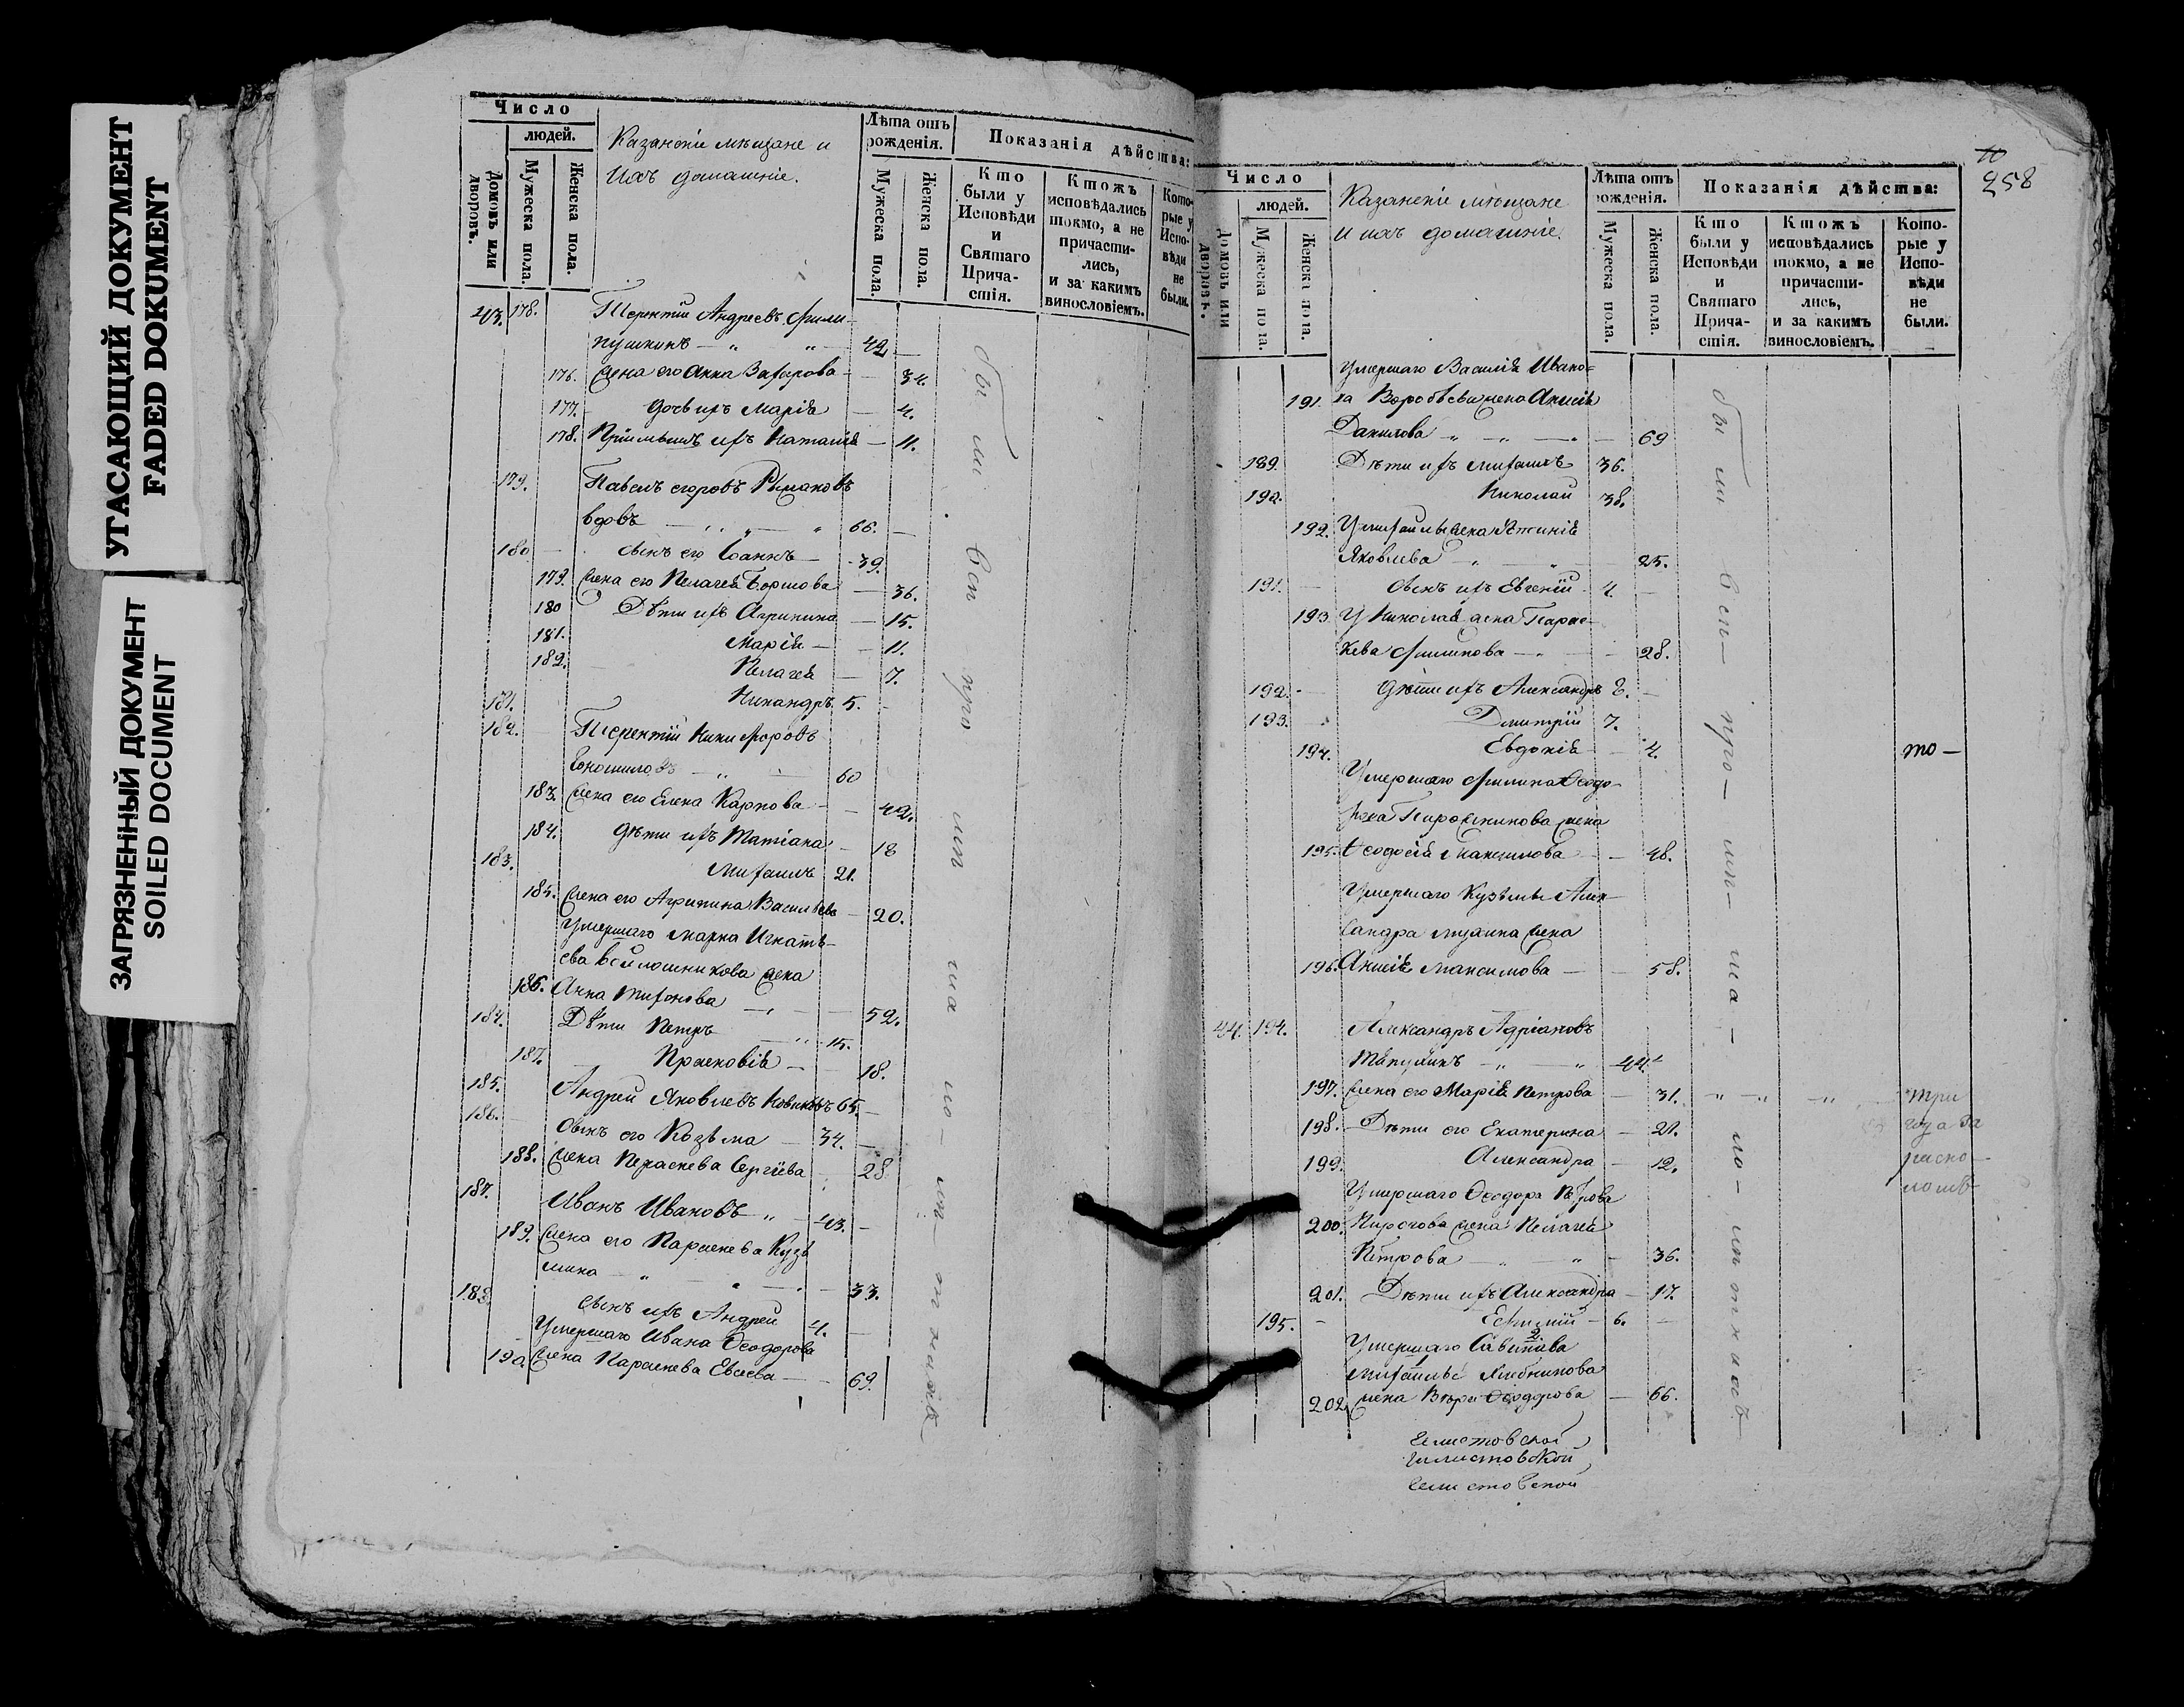 УГАСАЮЩИЙ ДОКУМЕНТ
FADED DOKUMENT
ЗАГРЯЗНЕННЫЙ ДОКУМЕНТ
SOILED DOCUMENT
Число
людей.
Домовъ или дворовъ.
Мужеска пола.
Женска пола.
Казанскіе мѣщане и
ихъ домашніе.
Лѣта отъ рожденія.
Мужеска пола.
Женска пола.
Показанія дѣйства:
Кто были у Исповѣди и Святаго Прича-стія.
Ктожъ исповѣдались токмо, а не причасти-лись, и за какимъ винословіемъ.
Кото-рые у Испо-вѣди не были.
43. 178. Терентій Андреевъ Фили-
пушкинъ 42
176. Жена его Анна Захарова 34.
177. Дочь ихъ Марія 4.
178. Пріемышъ ихъ Наталія 11.
179. Павелъ Егоровъ
вдовъ 66.
180 Сынъ его Іоаннъ 39.
179. Жена его Пелагея 36.
180 Дѣти ихъ Агрипина 15.
181. Марія 11.
182. Пелагея 7.
181. Никандръ 5.
182. Терентій Никифоровъ
60
183. Жена его Елена Карпова 42.
184. Дѣти ихъ Татіана 18
183. Михаилъ 21.
185. Жена его Агрипина Васильева 20.
Умершаго Марка Игнать-
ева Войлошникова жена
186. Анна Тихонова 52.
184. Дѣти Петръ 15.
187. Прасковія 18.
185. Андрей Яковлевъ Новиковъ 65
186. Сынъ его Козьма 34.
188. Жена Параскева Сергіева 28
187. Иванъ Ивановъ 43.
189. Жена его Параскева Кузь
мина 33.
188 Сынъ ихъ Андрей 4.
Умершаго Ивана Ѳеодорова
190 Жена Параскева Евсеева 69.
были всп про мп ма ло
258
Число
людей.
Домовъ или дворовъ.
Мужеска пола.
Женска пола.
Казанскіе мѣщане
и ихъ домашніе.
Лѣта отъ рожденія.
Мужеска пола.
Женска пола.
Показанія дѣйства:
Кто были у Исповѣди и Святаго Прича-стія.
Ктожъ исповѣдались токмо, а не причасти-лись, и за какимъ винословіемъ.
Кото-рые у Испо-вѣди не были.
Умершаго Василія Ивано-
191. ва Воробьева жена Анисія
Данилова 69
189. Дѣти ихъ Михаилъ 36.
190. Николай 38.
192. У Михаила жена
Яковлева 25.
191. Сынъ ихъ Евгеній 4.
193 У Николая жена Парас-
кева Филипова 28.
192. Дѣти ихъ Александръ 8.
193. Дмитрій 7.
194. Евдокія 4. то
Умершаго Филипа Ѳеодо-
рова Пирожникова жена
195. Ѳеодосія Максимова 48.
Умершаго Кузьмы Алек-
сандра Мухина жена
196. Анисія Максимова 58.
44. 194. Александръ Адріановъ
44
197. Жена его Марія Петрова 31. три
198. Дѣти его Екатерина 21. года за
199. Александра 12. раско-
Умершаго Ѳеодора Петрова ломъ
200. Пирогова жена Пелагея
Петрова 36.
201. Дѣти ихъ Александра 17.
195. Евфимій 6.
Умершаго Савинова
Михаила Хлѣбникова
202 жена Вѣра Ѳеодорова 66.
были всп про мп ма ло